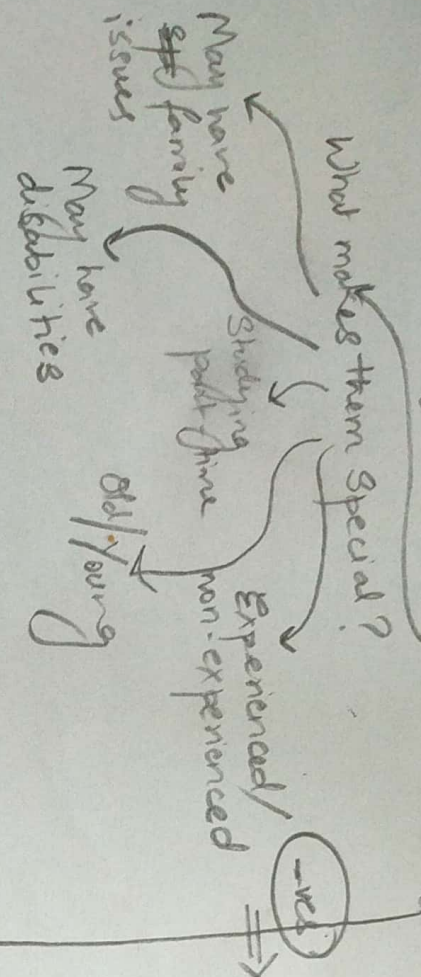 What makes them special?
May have
family
issues
May have
disabilities
Studying
part time
Old/Young
Experienced/
non-experienced
-ves